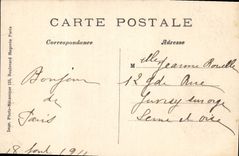 CARTE POSTALE
Correspondance
Adresse
Mlle Jeanne
12 gde Rue
Juvisy sur orge
Seine et oise
Bonjour
de
Paris
18 Aout 1911
Impr. Photo-Mécanique 123, Boulevard Magenta Paris